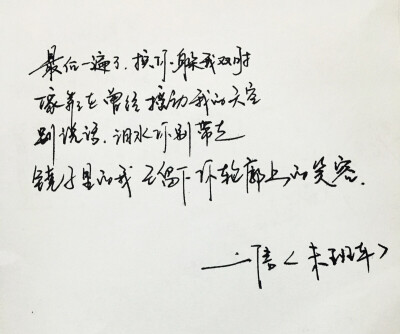 最后一遍了.我双
在曾经撼动我的天空
别说话.泪水你别带走
镜子里的我 留下你轮廓上的笑容.
——信<末班车>